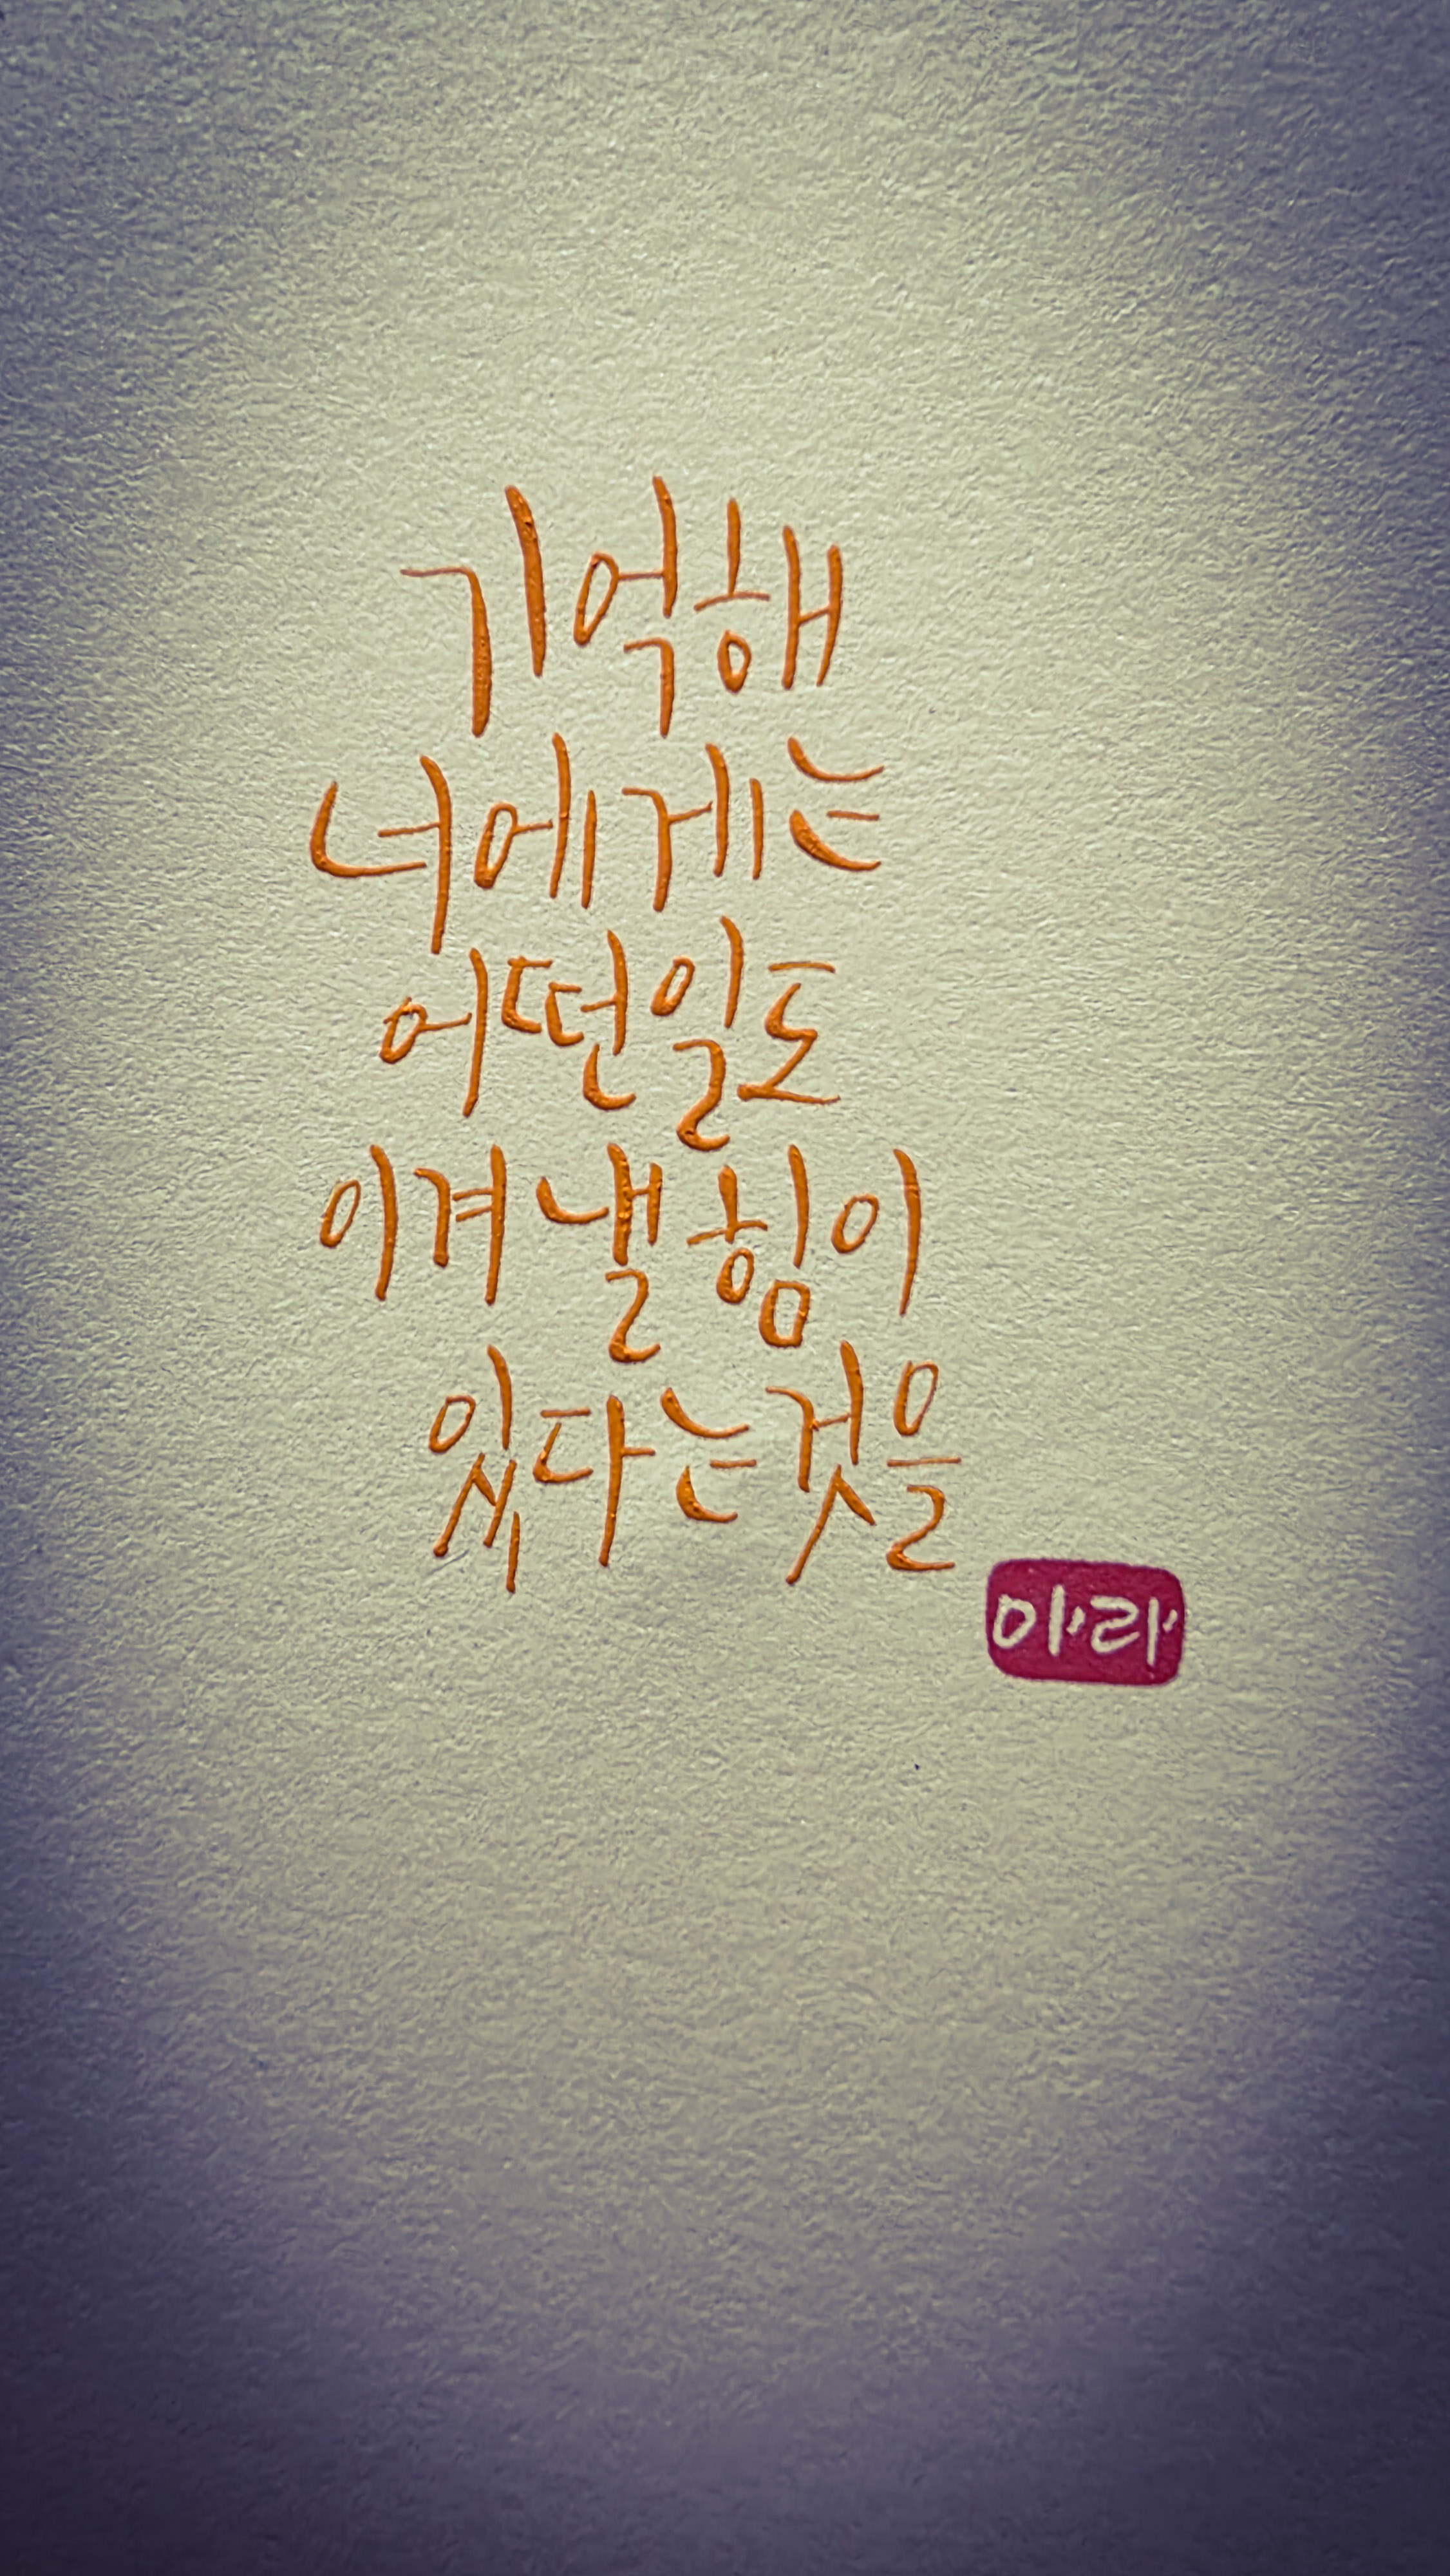 기억해
너에게는
어떤일도
이겨낼힘이
있다는것을
아라